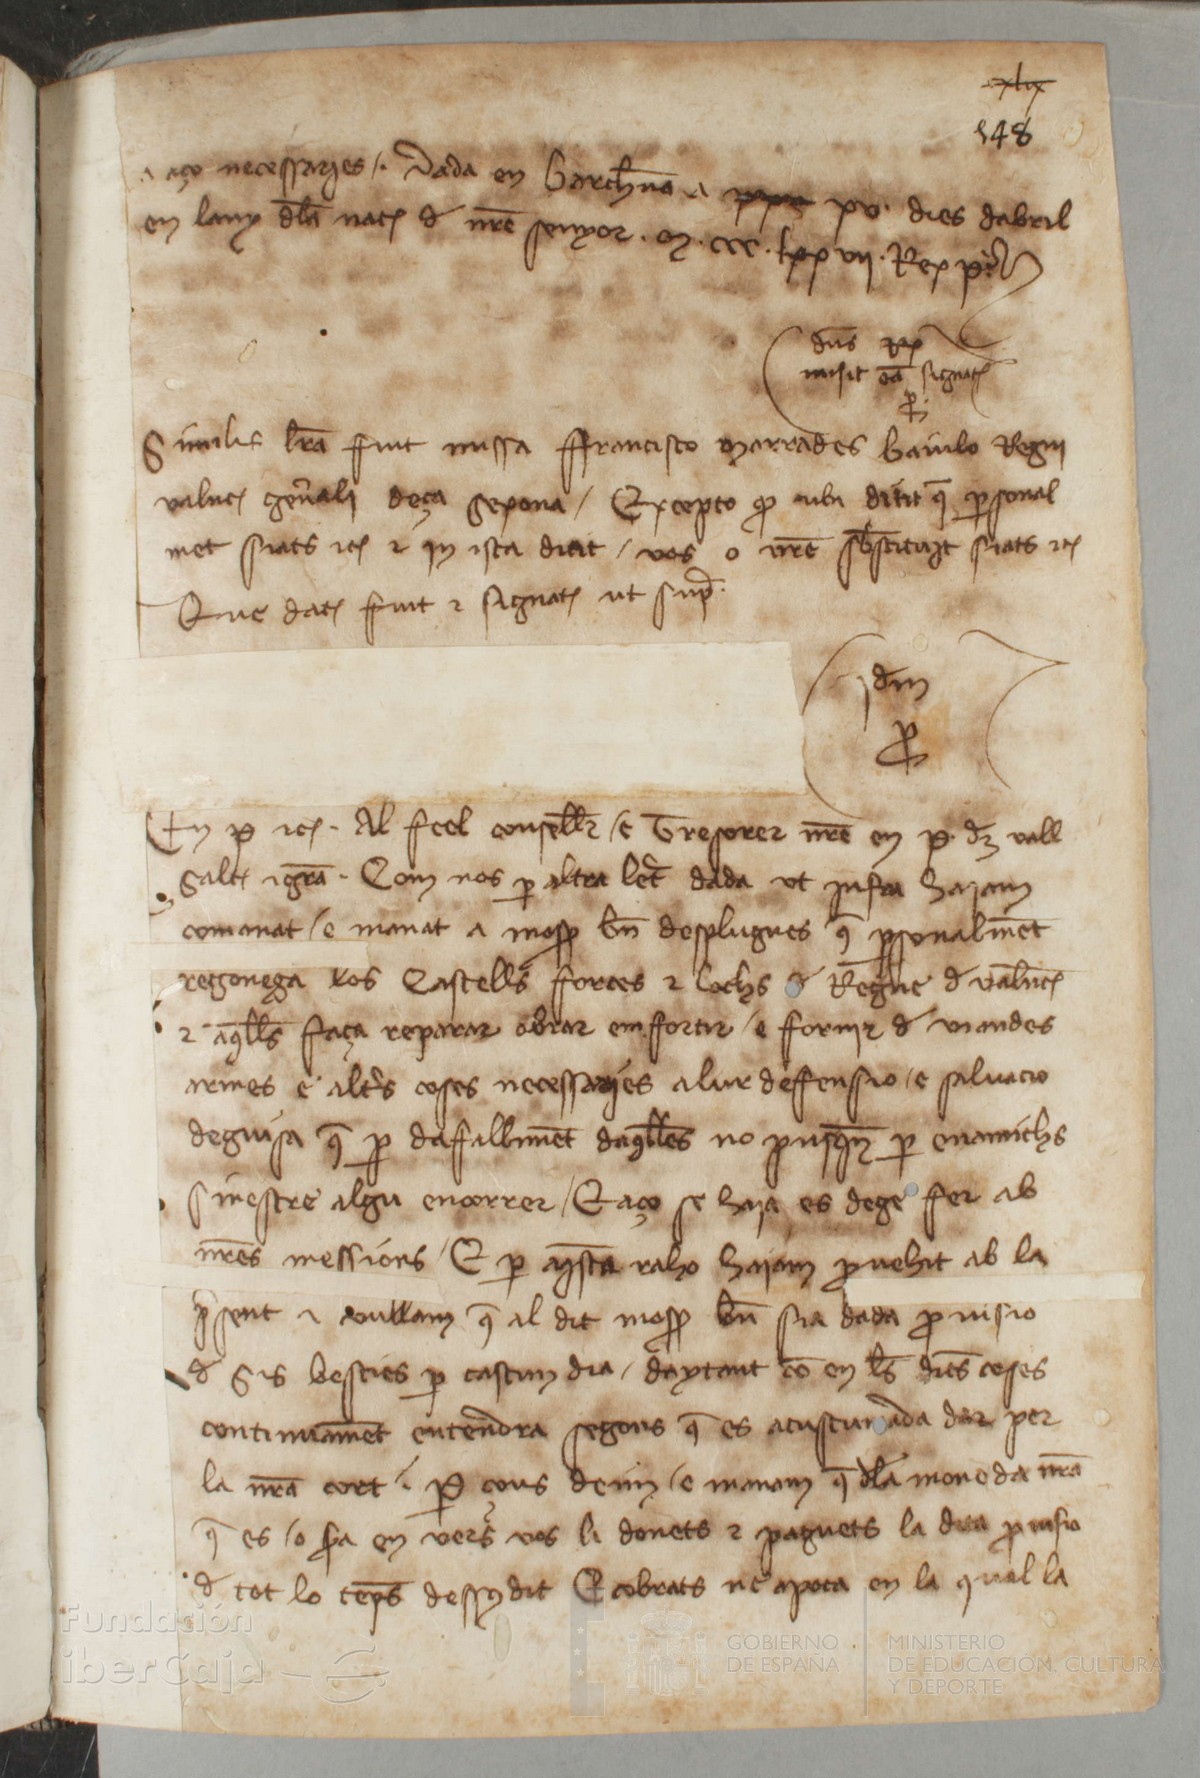 cxlix
148
a aço necessaries / . Dada en Barchna a xv . dies dabril
en lany dla nat d nre senyor . M . ccc . lxxvii . Rex p
dns Rex
misit ea signat
p
Similis lra fuit missa ffrancisco Marrades baiulo Regni
valnc gnali deça sexona / Excepto q ubi dicit q psonal
met siats etc z in ista dicit / vos o vre sbstituit siats etc
Que dat fuit z signat ut sup
idm
p
En p etc . Al feel consellr / e Tresorer nre en p . d vall
salt e gra . Com nos p altra letr dada ut infra haiam
comanat / e manat a mosse bn desplugues q psonalment
regonega los Castells forces z lochs d Regne d valnc
z aqlls faça reparar obrar enfortir / e fornir d viandes
armes e altrs coses necessaries a lur deffensio / e saluacio
deguisa q p defallimet daqlles no pusqn p enamichs
sinestre algu encorrer / E aço se haia es dege fer ab
nres messions / E p aqsta raho haiam prouehit ab la
psent z vullam q al dit mosse bn sia dada prouisio
d sis besties p cascun dia / daytant co en ls dites coses
continuamet entendra segons q es acustumada dar per
la nra cort . p ço us dehim / e manam q dla moneda nra
q es / o sra en vers vos li donets z paguets la dita prouisio
d tot lo temps dessus dit E cobrats ne apoca en la qual la
Fundación
iberCaja
GOBIERNO
DE ESPAÑA
MINISTERIO
DE EDUCACIÓN, CULTURA
Y DEPORTE